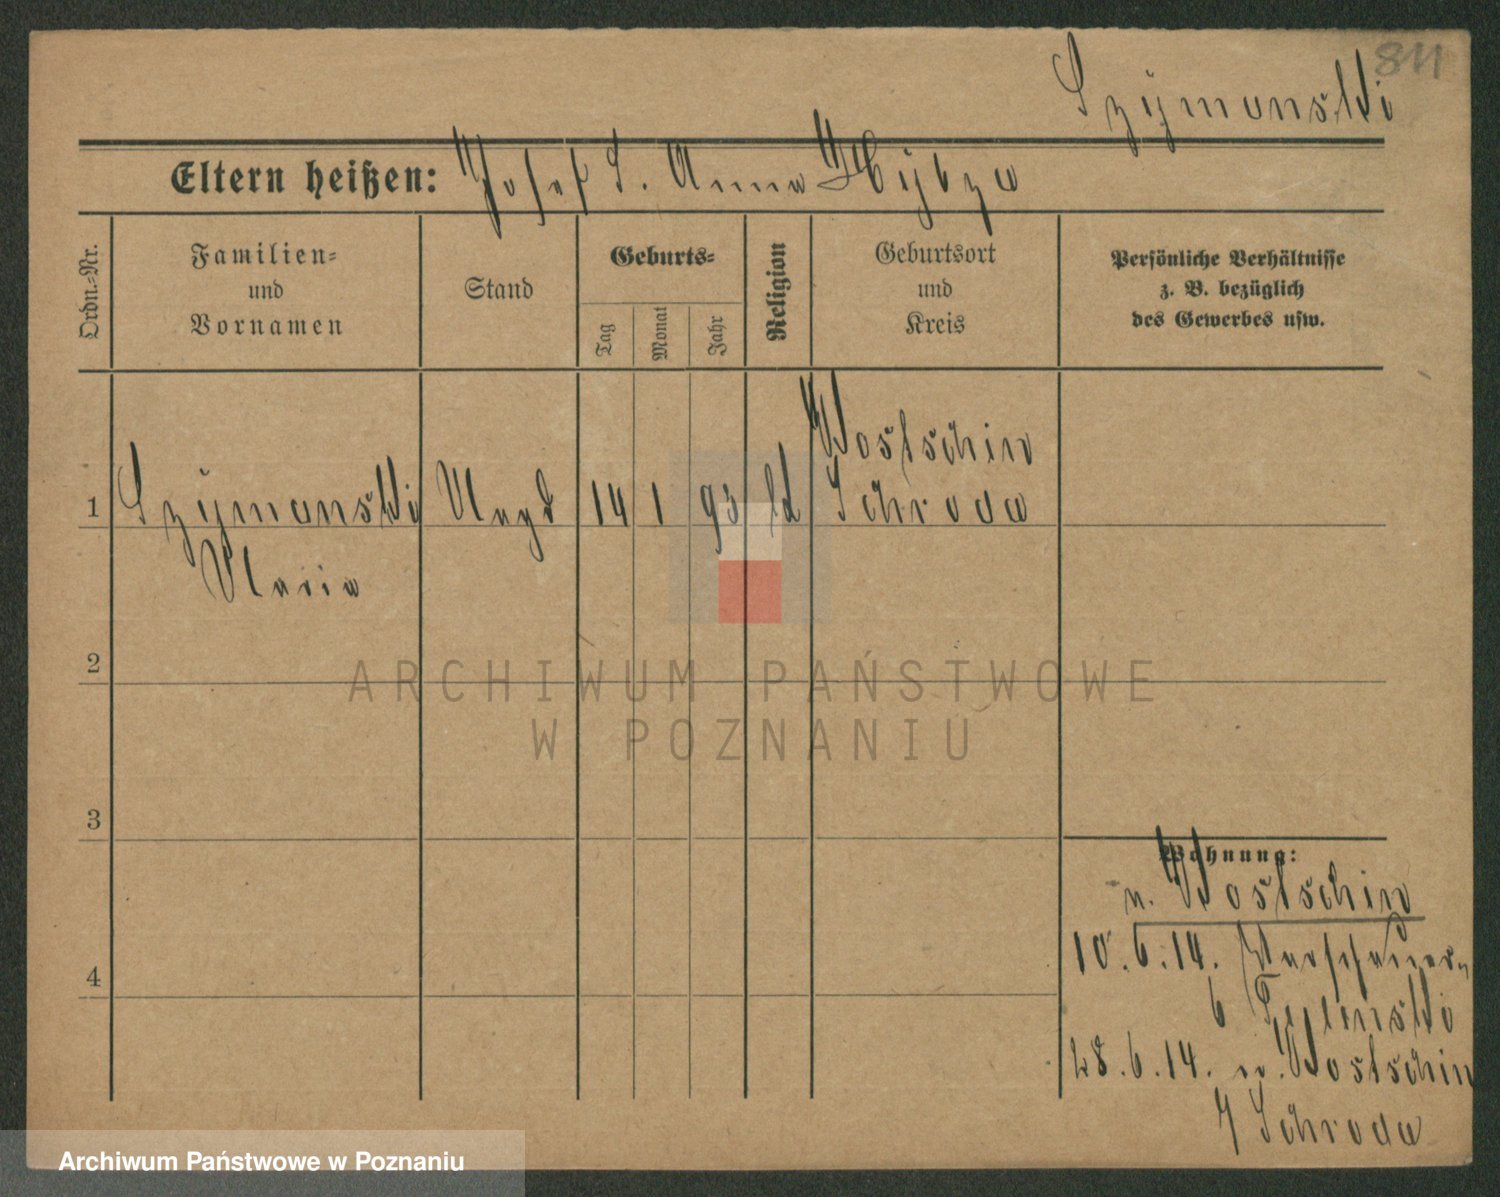 811
Szymanski
Eltern heißen: Josef S. Anna Hybza
Ordn.=Nr.
Familien=
und
Vornamen
Stand
Geburts=
Tag
Monat
Jahr
Religion
Geburtsort
und
Kreis
Persönliche Verhältnisse
z. B. bezüglich
des Gewerbes usw.
Wostschin
1 Szymanski Magd 14 1 93 kt Schroda
Maria
2
ARCHIWUM PAŃSTWOWE
W POZNANIU
3
Wohnung:
n. Wostschin
4
10.6.14.
6
28.6.14. n. Wostschin
Schroda
Archiwum Państwowe w Poznaniu